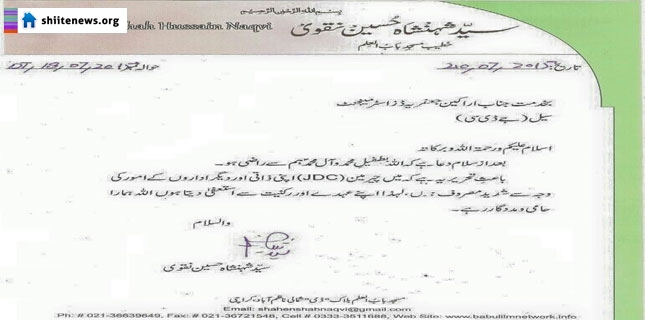 shiitenews.org
بسم اللہ الرحمٰن الرحیم
Shah Hussain Naqvi
سید شہنشاہ حسین نقوی
خطیب مسجد باب العلم
تاریخ
بخدمت جناب اراکین جعفریہ ڈزاسٹر مینجمنٹ
سیل (جے ڈی سی)
اسلام علیکم ورحمۃ اللہ وبرکاتہ
بعد از سلام دعا ہے کہ اللہ بطفیل محمد وآل محمد ہم سے راضی ہو۔
باعث تحریر یہ ہے کہ میں چیرمین (JDC) اپنی ذاتی اور دیگر اداروں کے امور کی
وجہ سے شدید مصروف ہوں، لہٰذا اپنے عہدے اور رکنیت سے استعفیٰ دیتا ہوں اللہ ہمارا
حامی و مددگار رہے۔
والسلام
سید شہنشاہ حسین نقوی
مسجد باب العلم بلاک "ڈی" شمالی ناظم آباد، کراچی
Email: shahenshahnaqvi@gmail.com
Ph: # 021-36639649, Fax: # 021-36721548, Cell # 0333-3511688, Web Site: www.babulilmnetwork.info